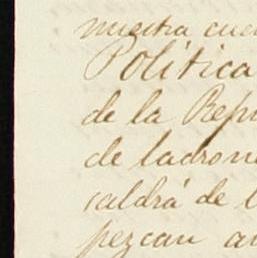 nuestra cue
Política
de la Repu
de ladrone
saldrá de l
pezcan a